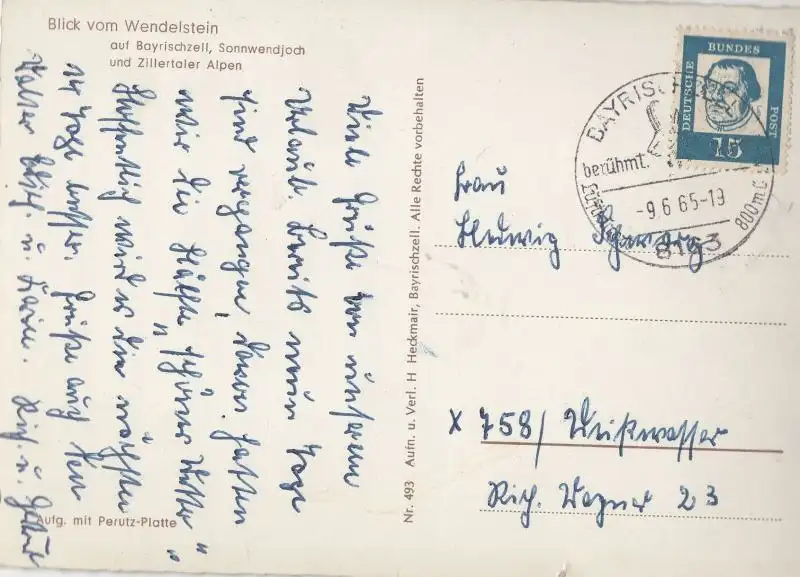 Blick vom Wendelstein
auf Bayrischzell, Sonnwendjoch
und Zillertaler Alpen
Viele Grüße von unserem
Urlaub. Bereits neun Tage
sind vergangen, davon hatten
wir die Hälfte "schönes Wetter"
Hoffentlich wird es die nächsten
14 Tage besser. Grüße auch den
Aufg. mit Perutz-Platte
Nr. 493 Aufn. u. Verl. H Heckmair, Bayrischzell. Alle Rechte vorbehalten
DEUTSCHE BUNDESPOST
15
BAYRISCHZELL
berühmt.
-9.6.65-19
800m ü.
8163
Frau
Hedwig Schwarz
x 758/ Weißwasser
Rich. Wagner 23